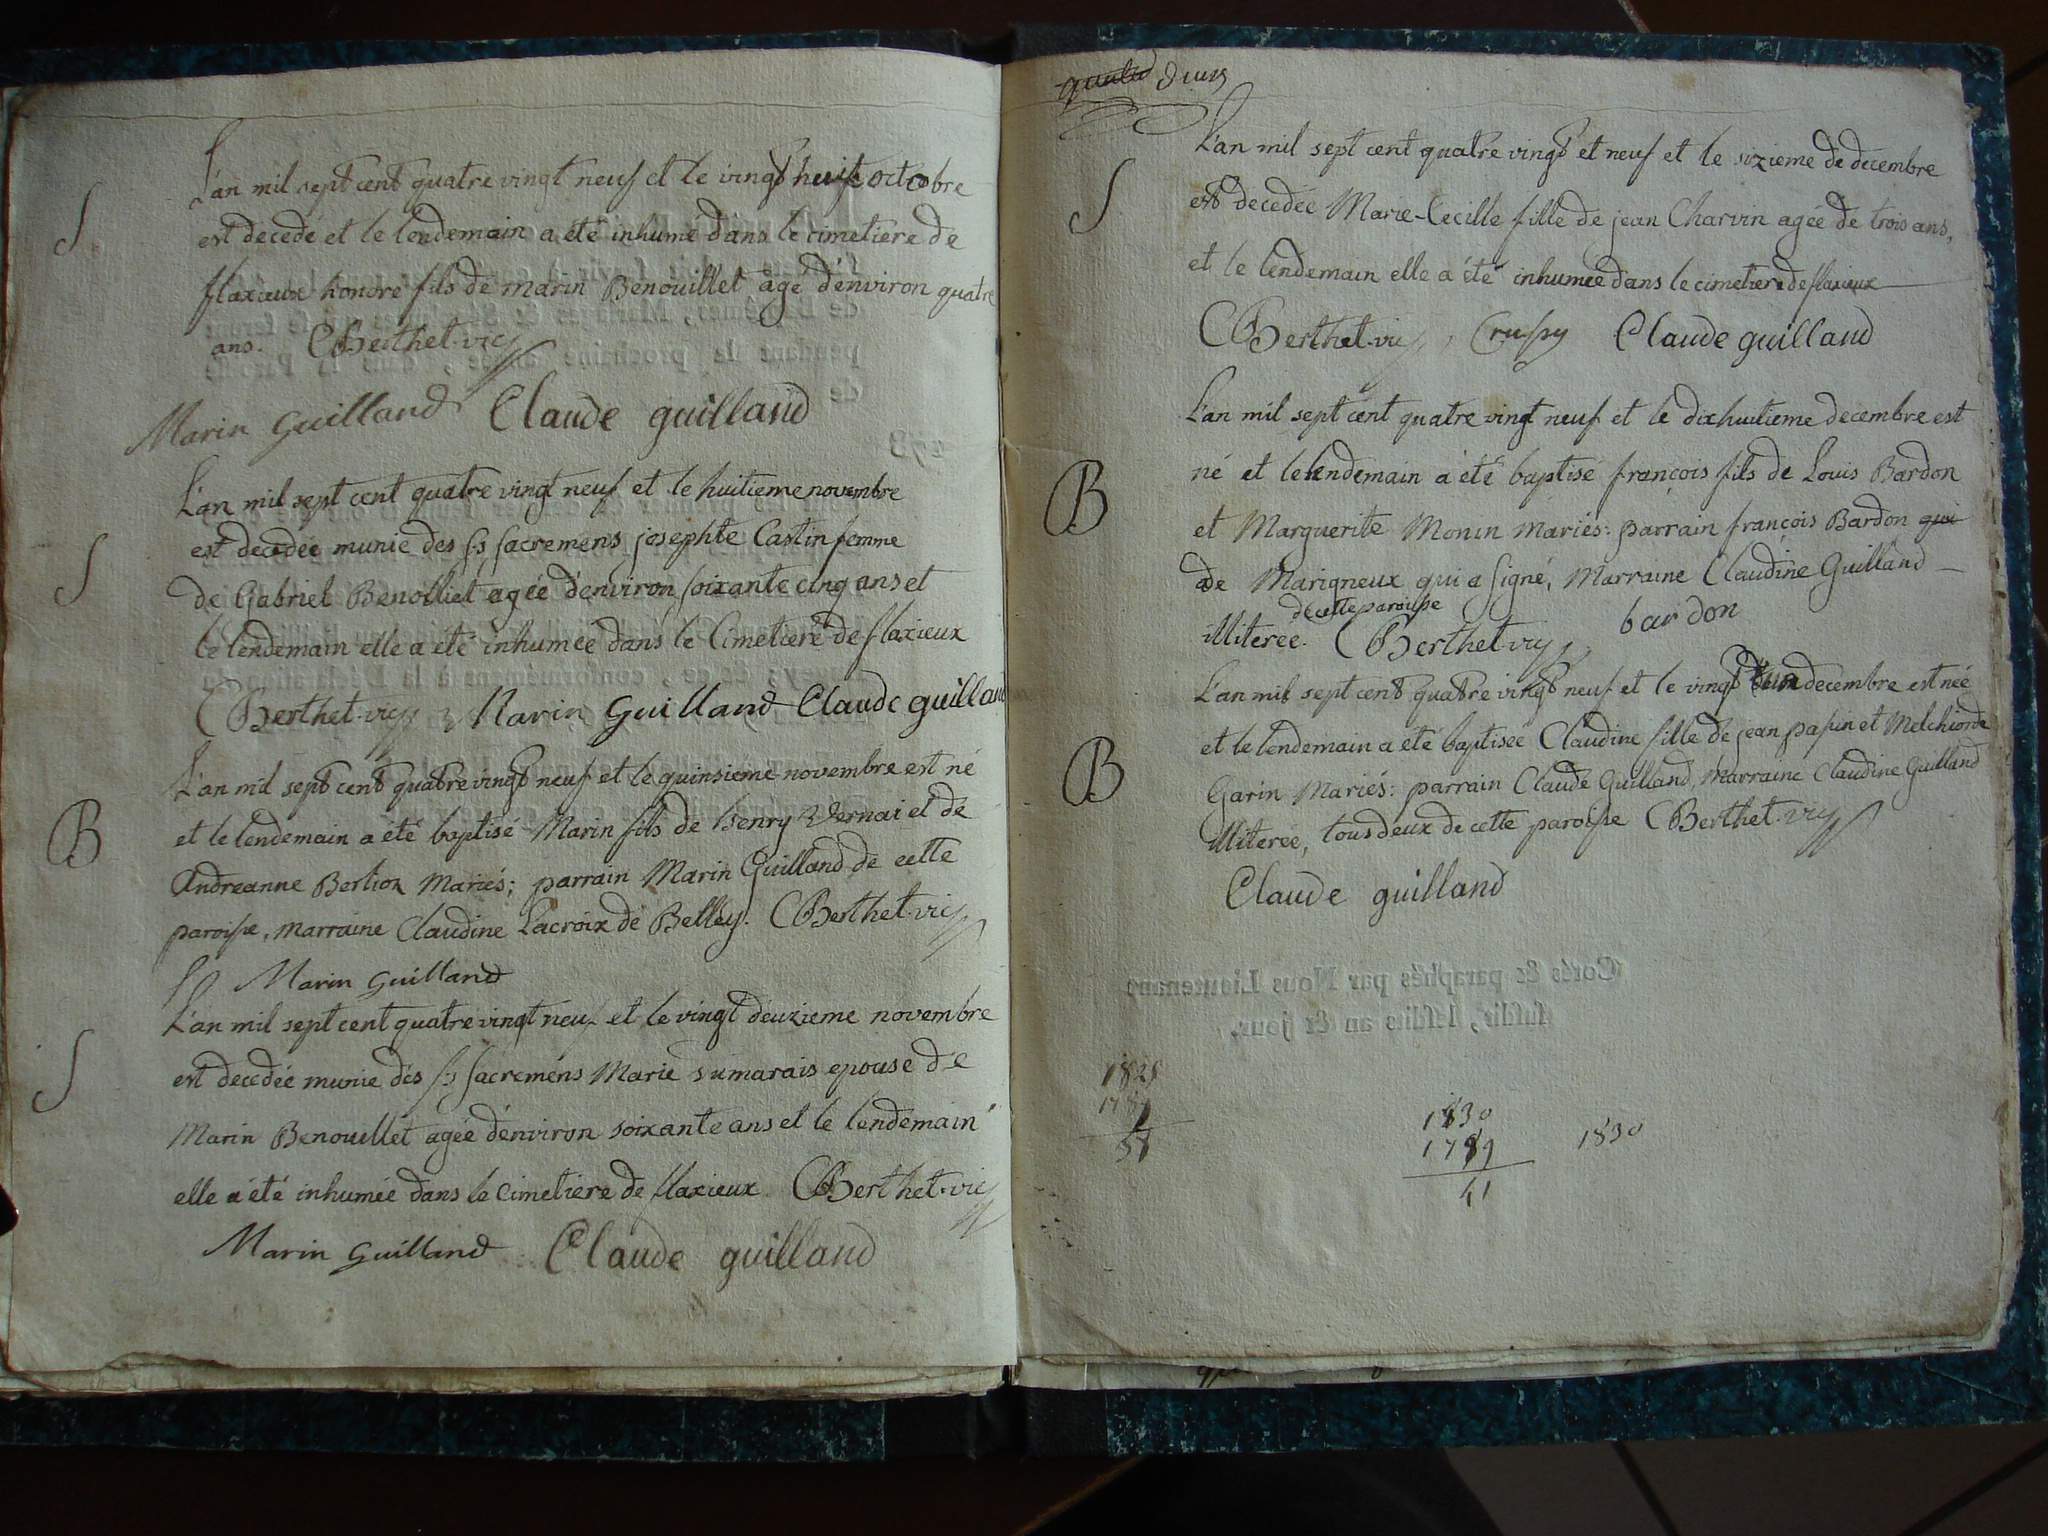 S
L'an mil sept cent quatre vingt neuf et le vingt huit octobre
est decedé et le lendemain a été inhumé dans le cimetiere de
flaxieux honoré fils de marin Benouillet agé d'environ quatre
ans. Berthet vic
Marin Guilland Claude guilland
S
L'an mil sept cent quatre vingt neuf et le huitieme novembre
est decedée munie des ss sacremens josephte Castin femme
de Gabriel Benolliet agée d'environ soixante cinq ans et
le lendemain elle a été inhumée dans le Cimetiere de flaxieux
Berthet vic Marin Guilland Claude guilland
B
L'an mil sept cent quatre vingt neuf et le quinsieme novembre est né
et le lendemain a été baptisé Marin fils de henry Vernai et de
Andreanne Berlion Mariés; parrain Marin Guilland de cette
paroisse, marraine Claudine Lacroix de Belley. Berthet vic
Marin Guilland
S
L'an mil sept cent quatre vingt neuf et le vingt deuzieme novembre
est decedée munie des ss sacremens Marie sumarais epouse de
Marin Benouillet agée d'environ soixante ans et le lendemain
elle a été inhumée dans le cimetiere de flaxieux. Berthet vic
Marin Guilland Claude guilland
S
L'an mil sept cent quatre vingt et neuf et le sizieme de decembre
est decedée Marie-Cecille fille de jean Charvin agée de trois ans,
et le lendemain elle a été inhumée dans le cimetiere de flaxieux
Berthet vic, Crussy Claude guilland
B
L'an mil sept cent quatre vingt neuf et le dixhuitieme decembre est
né et le lendemain a été baptisé françois fils de Louis Bardon
et Marguerite Monin Mariés: parrain françois Bardon qui
de Marigneux qui a signé, Marraine Claudine Guilland
de cette paroisse
illiterée. Berthet vic, bardon
B
L'an mil sept cent quatre vingt neuf et le vingt decembre est née
et le lendemain a été baptisée Claudine fille de jean pasin et Melchiorde
Garin Mariés: parrain Claude Guilland, Marraine Claudine Guilland
illiterée, tous deux de cette paroisse Berthet vic
Claude guilland
Cotés & paraphés par Nous Lieutenant
susdit, lesdits an & jour.
1830
1789 1830
41